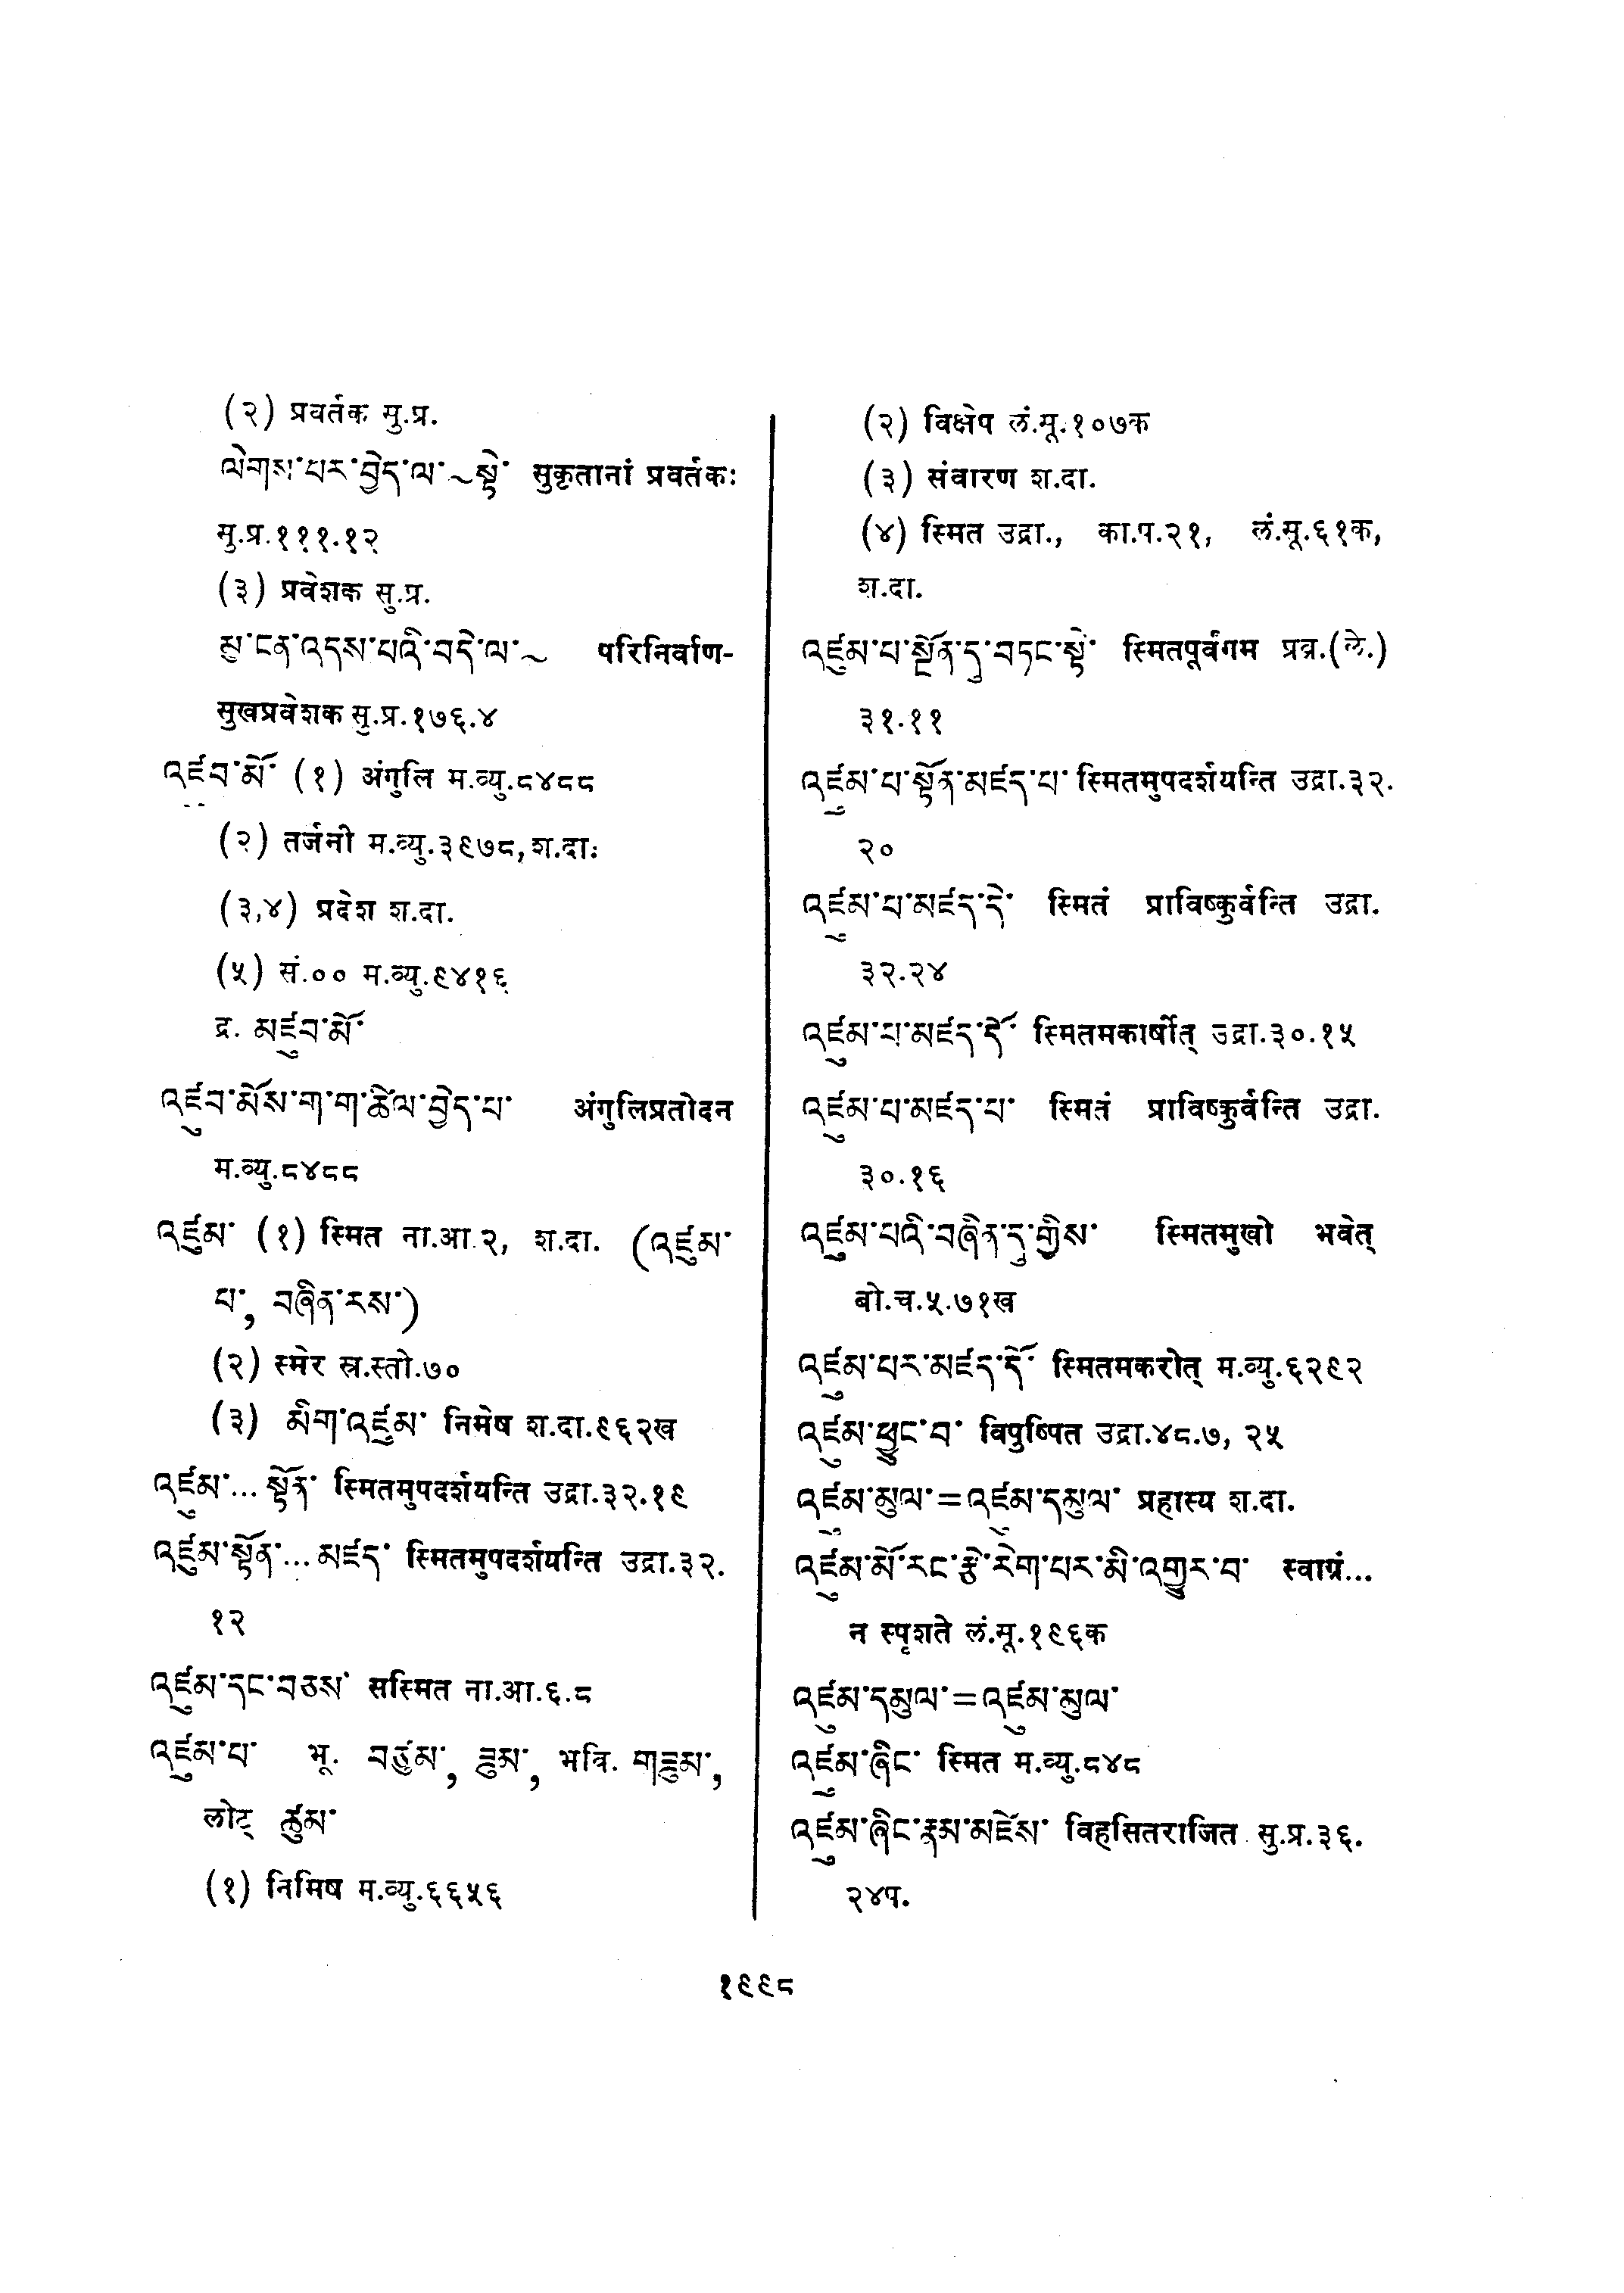 (२) प्रवर्तक मु.प्र.
ལེགས་པར་བྱེད་ལ་~སྟེ་ सुकृतानां प्रवर्तकः
मु.प्र.१११.१२
(३) प्रवेशक सु.प्र.
མྱ་ངན་འདས་པའི་བདེ་ལ་~ परिनिर्वाण-
सुखप्रवेशक सु.प्र.१७६.४
འཛུབ་མོ་ (१) अंगुलि म.व्यु.८४८८
(२) तर्जनी म.व्यु.३९७८, श.दाः
(३,४) प्रदेश श.दा.
(५) सं.०० म.व्यु.९४१६
द्र. མཛུབ་མོ་
འཛུབ་མོས་ག་ག་ཚིལ་བྱེད་པ་ अंगुलिप्रतोदन
म.व्यु.८४८८
འཛུམ་ (१) स्मित ना.आ.२, श.दा. (འཛུམ་
པ་, བཞིན་རས་)
(२) स्मेर स्र.स्तो.७०
(३) མིག་འཛུམ་ निमेष श.दा.९६२ख
འཛུམ་... སྟོན་ स्मितमुपदर्शयन्ति उद्रा.३२.१९
འཛུམ་སྟོན་... མཛད་ स्मितमुपदर्शयन्ति उद्रा.३२.
१२
འཛུམ་དང་བཅས་ सस्मित ना.आ.६.८
འཛུམ་པ་ भू. བཙུམ་, ཟུམ་, भवि. གཟུམ་,
लोट् ཚུམ་
(१) निमिष म.व्यु.६६५६
(२) विक्षेप लं.मू.१०७क
(३) संवारण श.दा.
(४) स्मित उद्रा., का.प.२१, लं.मू.६१क,
श.दा.
འཛུམ་པ་སྔོན་དུ་བཏང་སྟེ་ स्मितपूर्वंगम प्रव्र.(ले.)
३१.११
འཛུམ་པ་སྟོན་མཛད་པ་ स्मितमुपदर्शयन्ति उद्रा.३२.
२०
འཛུམ་པ་མཛད་དེ་ स्मितं प्राविष्कुर्वन्ति उद्रा.
३२.२४
འཛུམ་པ་མཛད་དོ་ स्मितमकार्षीत् उद्रा.३०.१५
འཛུམ་པ་མཛད་པ་ स्मितं प्राविष्कुर्वन्ति उद्रा.
३०.१६
འཛུམ་པའི་བཞིན་དུ་གྱིས་ स्मितमुखो भवेत्
बो.च.५.७१ख
འཛུམ་པར་མཛད་དོ་ स्मितमकरोत् म.व्यु.६२९२
འཛུམ་ཕྱུང་བ་ विपुष्पित उद्रा.४८.७, २५
འཛུམ་མུལ་=འཛུམ་དམུལ་ प्रहास्य श.दा.
འཛུམ་མོ་རང་རྩེ་རེག་པར་མི་འགྱུར་བ་ स्वाग्रं...
न स्पृशते लं.मू.१९६क
འཛུམ་དམུལ་=འཛུམ་མུལ་
འཛུམ་ཞིང་ स्मित म.व्यु.८४८
འཛུམ་ཞིང་རྣམ་མཛེས་ विहसितराजित सु.प्र.३६.
२४प.
१९९८